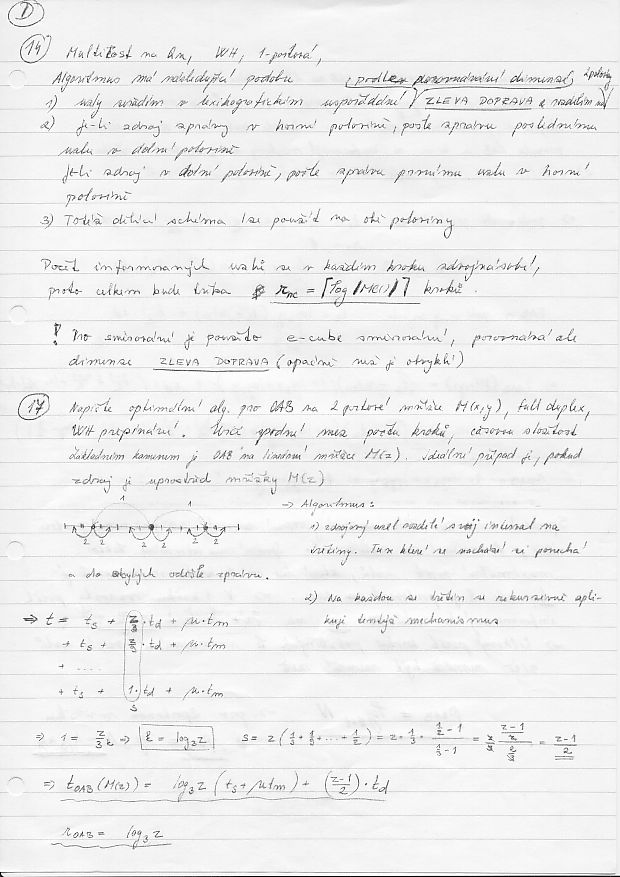 D
14 Multicast na Qn, WH, 1-portová,
Algoritmus má následující podobu (podle porovnávání dimenze) 2 poloviny
1) uzly uvádím v lexikografickém uspořádání ZLEVA DOPRAVA a rozdělím na
2) je-li zdroj zprávy v horní polovině, pošle zprávu poslednímu
uzlu v dolní polovině
Je-li zdroj v dolní polovině, pošle zprávu prvnímu uzlu v horní
polovině
3) Totéž dělící schéma lze použít na obě poloviny
Počet informovaných uzlů se v každém kroku zdvojnásobí,
proto celkem bude třeba r_MC = ⌈log |MC()|⌉ kroků.
! Pro směrování je použito e-cube směrování, porovnává ale
dimenze ZLEVA DOPRAVA (opačně než je obvyklé)
17 Napište optimální alg. pro OAB na 2 portové mřížce M(x,y), full duplex,
WH přepínání. Urči spodní mez počtu kroků, časovou složitost
Základním kamenem je OAB na lineární mřížce M(z). Ideální případ je, pokud
zdroj je uprostřed mřížky M(z)
1 1
2 2 2 2 2 2
→ Algoritmus:
1) zdrojový uzel rozdělí svůj interval na
třetiny. Tu ve které se nachází si ponechá
a do zbylých odešle zprávu.
2) Na každou ze třetin se rekurzivně apli-
kuje tentýž mechanismus
⇒ t = t_s + z/3 · t_d + μ·t_m
+ t_s + z/9 · t_d + μ·t_m
+ ....
+ t_s + 1 · t_d + μ·t_m
s
⇒ 1 = z/3^k ⇒ k = log_3 z s = z (1/3 + 1/9 + ... + 1/z) = z · 1/3 · (1/z - 1)/(1/3 - 1) = z/3 (z-1)/z / 2/3 = (z-1)/2
⇒ t_OAB (M(z)) = log_3 z (t_s + μtm) + ((z-1)/2) · t_d
r_OAB = log_3 z